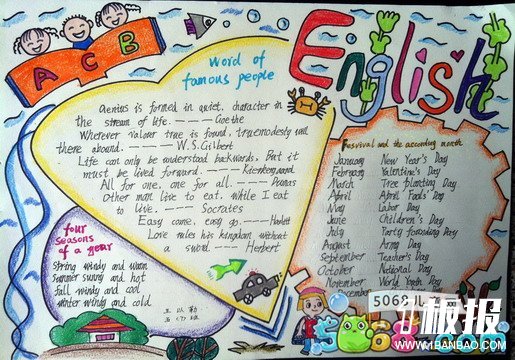 A C B
Word of
famous people
Genius is formed in quiet, character in
the stream of life. ———— Goethe
Wherever valour true is found, true modesty will
there abound. ———— W.S.Gilbert
Life can only be understood backwards, but it
must be lived forward. ———— Kierkengaard
All for one, one for all. ———— Dumas
Other man live to eat, while I eat
to live. ———— Socrates
Easy come, easy go. ————
Love rules his kingdom without
a sword. ———— Herbert
four
seasons
of a year
Spring windy and warm
summer sunny and hot
fall windy and cool
winter windy and cold
English
Fesvival and the according month
January New Year's Day
February Valentine's Day
March Tree planting Day
April April Fools' Day
May Labor Day
June Children's Day
July Party Founding Day
August Army Day
September Teacher's Day
October National Day
November World Youth Day
5068儿
板报
WWW.1BANBAO.COM